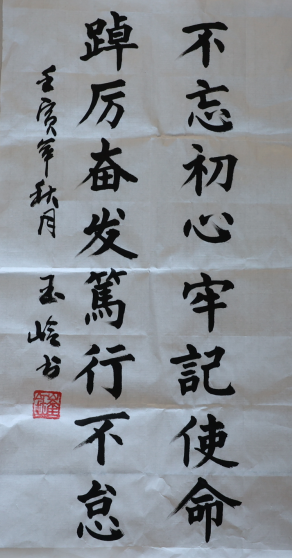 不忘初心牢記使命
踔厉奋发篤行不怠
壬寅年秋月 玉崄书